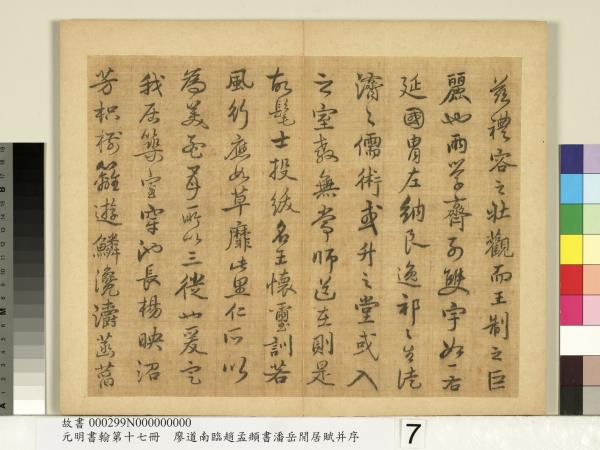 茲禮容之壯觀而王制之巨
麗也兩學齊列雙宇如一右
延國胄左納良逸祁〻生徒
濟〻儒術或升之堂或入
之室教無常師道在則是
故髦士投紱名王懷璽訓若
風行應如草靡此里仁所以
為美孟母所以三徙也爰定
我居築室穿池長楊映沼
芳枳樹籬遊鱗瀺灂菡萏
故書 000299N000000000
元明書翰第十七冊 廖道南臨趙孟頫書潘岳閒居賦并序
7